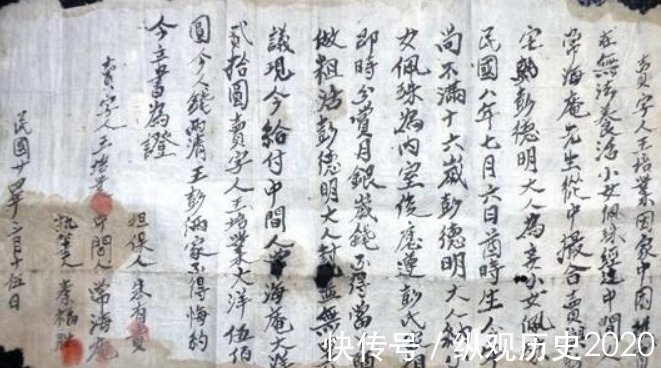 賣字人王培業因家中困難
在無法養活小女佩珠經過中間人
常海庵先生從中撮合賣
宅興彭德明大人為妾小女佩珠
民國八年七月六日酉時生人
尚不滿十六歲彭德明大人
女佩珠為內室後應遵彭氏
即時分賞月銀歲錢不得當
做粗活彭德明大人對並無
議現今給付中間人常海庵大洋
貳拾圓賣字人王培業大洋伍佰
圓今人錢兩清王彭兩家不得悔約
今立書為證
担保人
賣字人王培業中間人常海庵
執筆人李福勝
民國廿四年三月十五日
快传号/纵观历史2020